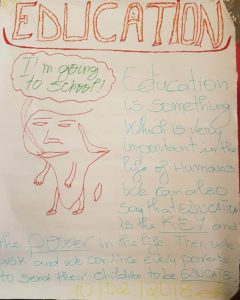 EDUCATION
I'm going
to school!
Education
is something
Which is very
important in the
life of Humans.
We can also
say that EDUCATION
is the KEY and
the power in the life. Then we
ask and we convince every parents
to send their children to be EDUCATE.
10/02/2018